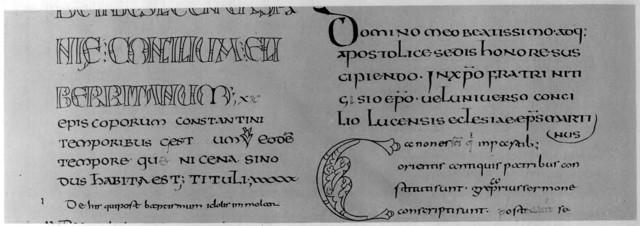 NIE: CONCILIUM: ELI
BERRITANUM;
episcoporum constantini
temporibus gest um eodē
tempore que nicena sino
dus habita est; tituli;
1 De his qui post baptismum idolis immolar.
Domino meo beatissimo adq;
apostolice sedis honore sus
cipiendo. In xp̄o fratri niti
gisio ep̄o. uel uniuerso conci
lio Lucensis eclesiae ep̄s marti
nus
Canones in partib;
orientis antiquis patribus con
stituti sunt. prius sermone
conscripti sunt.